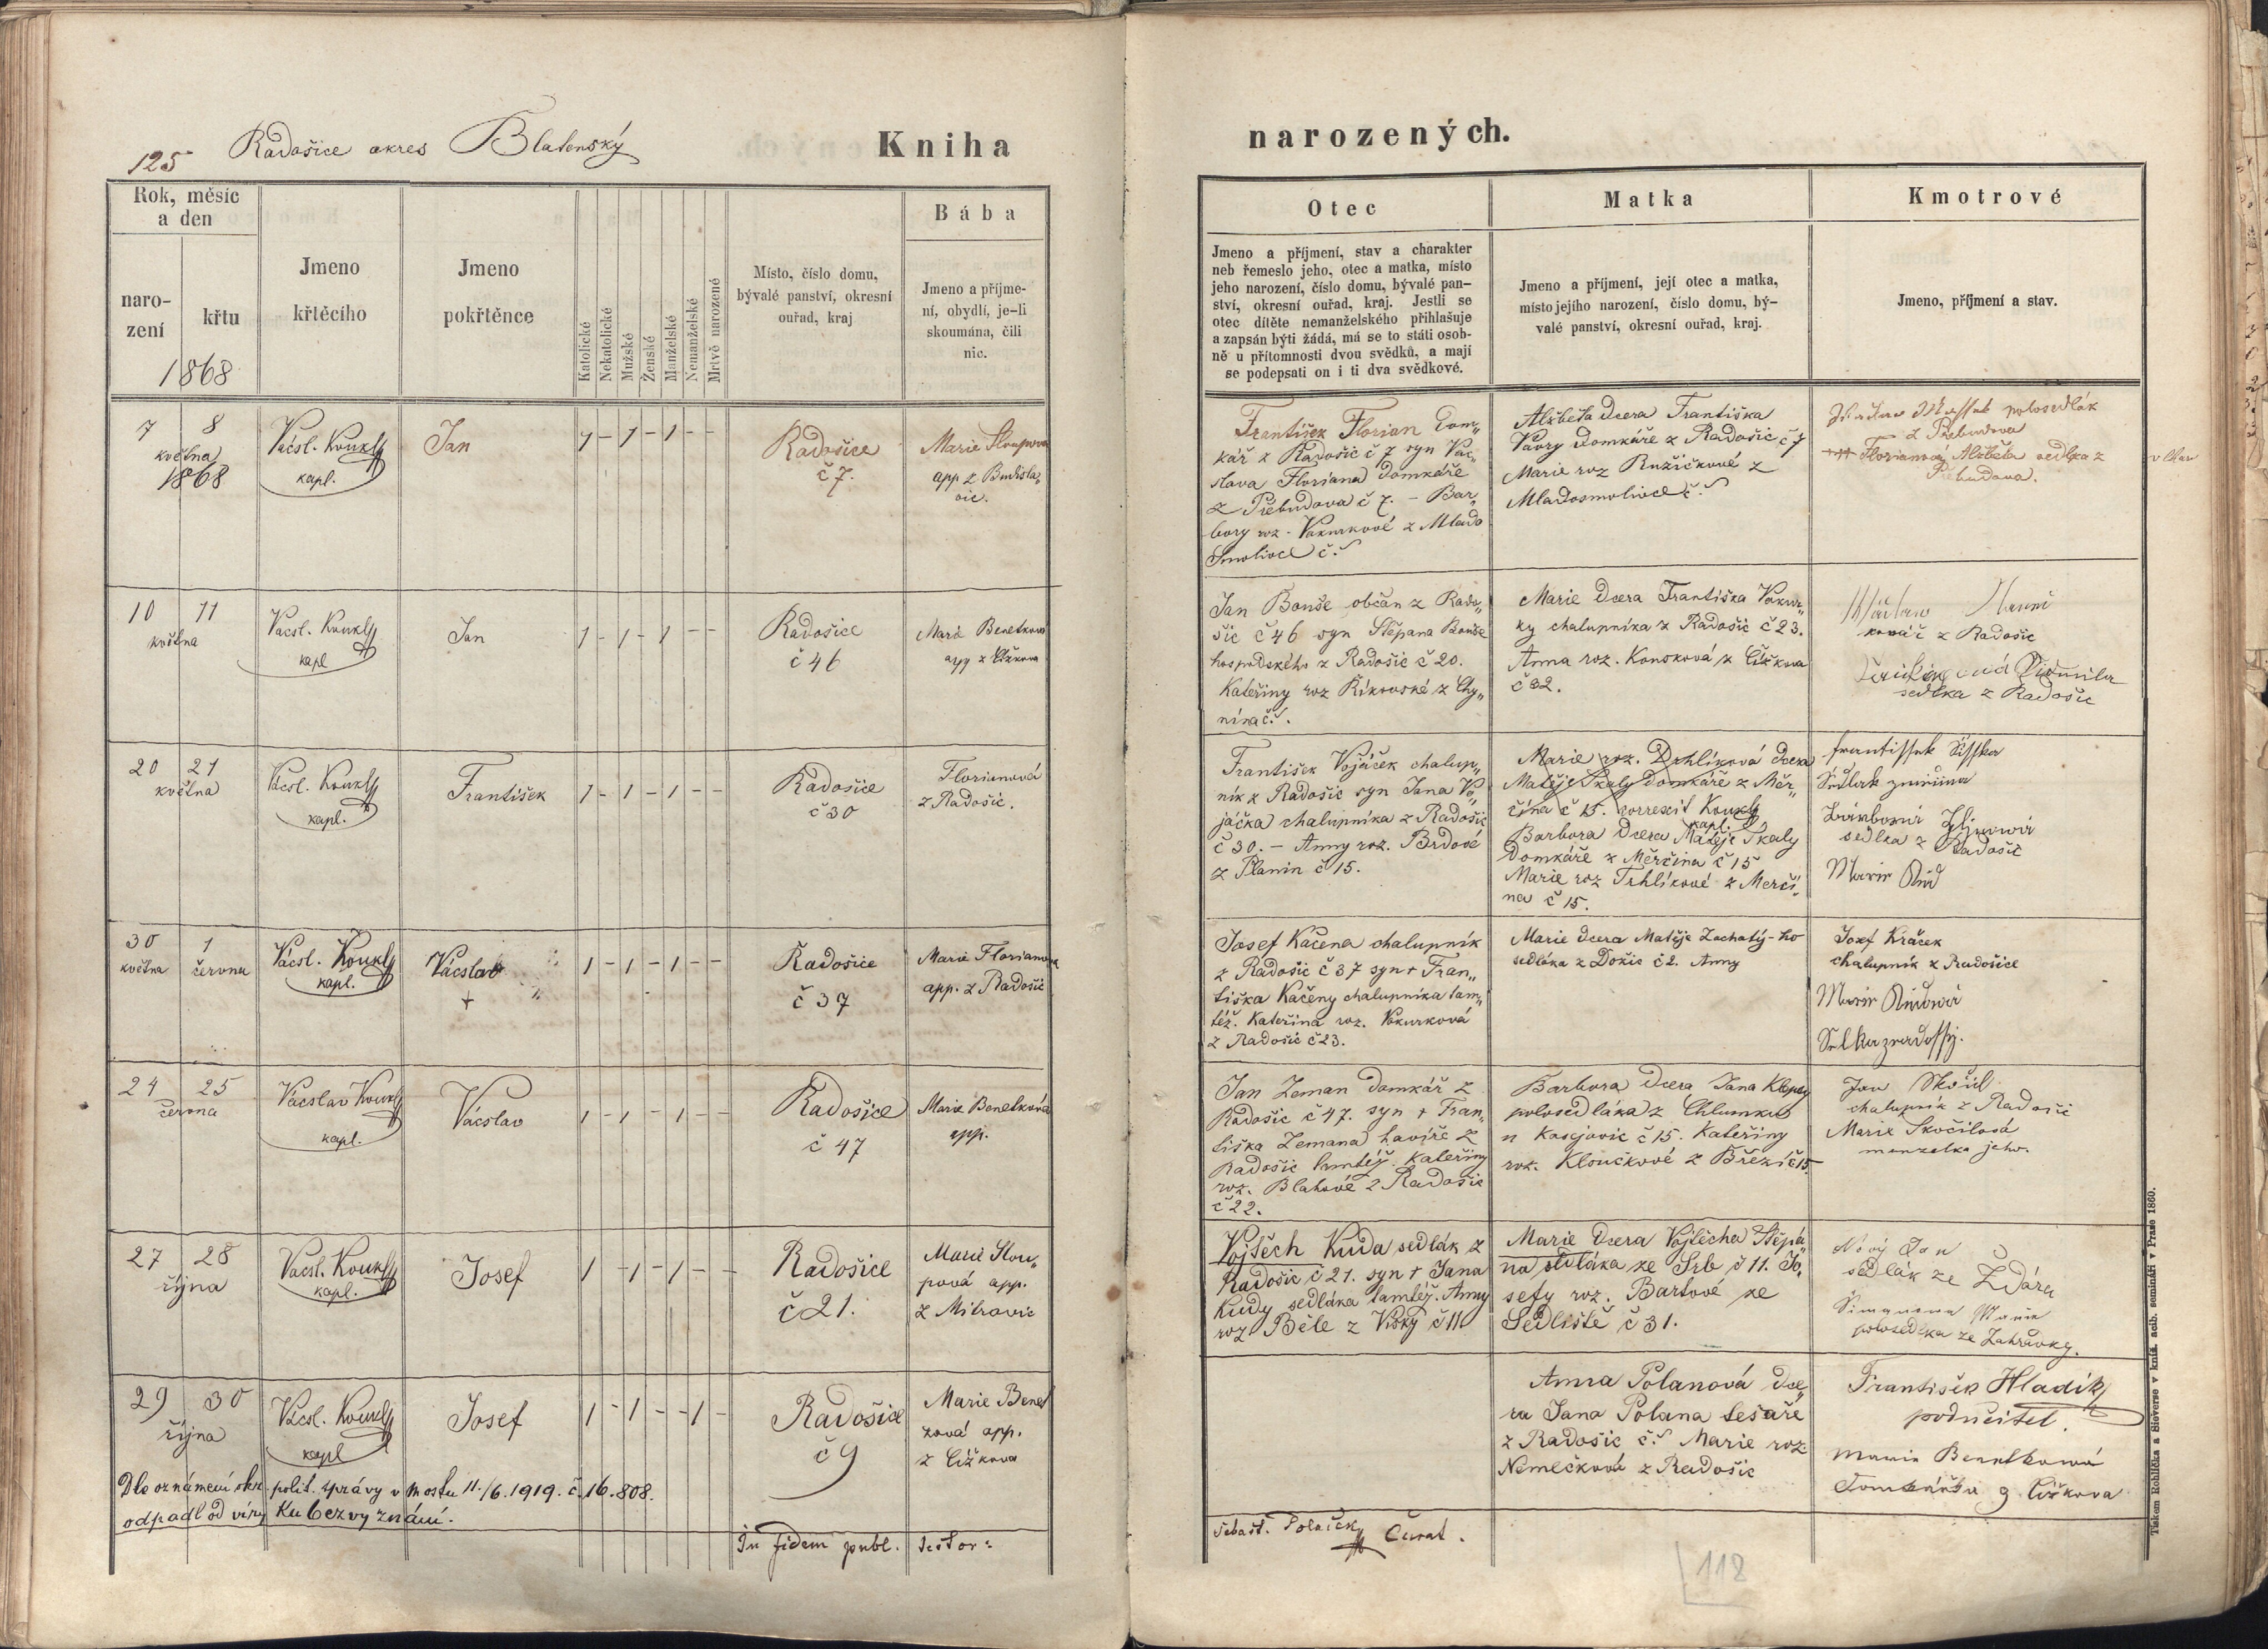 125 Radošice okres Blatenský
Kniha narozených.
Rok, měsíc
a den
naro-
zení
křtu
1868
Jmeno
křtěcího
Jmeno
pokřtěnce
Katolické
Nekatolické
Mužské
Ženské
Manželské
Nemanželské
Mrtvě narozené
Místo, číslo domu,
bývalé panství, okresní
ouřad, kraj
Bába
Jmeno a příjme-
ní, obydlí, je-li
skoumána, čili
nic.
Otec
Jmeno a příjmení, stav a charakter
neb řemeslo jeho, otec a matka, místo
jeho narození, číslo domu, bývalé pan-
ství, okresní ouřad, kraj. Jestli se
otec dítěte nemanželského přihlašuje
a zapsán býti žádá, má se to státi osob-
ně u přítomnosti dvou svědků, a mají
se podepsati on i ti dva svědkové.
Matka
Jmeno a příjmení, její otec a matka,
místo jejího narození, číslo domu, bý-
valé panství, okresní ouřad, kraj.
Kmotrové
Jmeno, příjmení a stav.
7 8
května
1868
Vácsl. Koukl
kapl.
Jan
1 - 1 - 1 - -
Radošice
č 7.
Marie
app z
František Florian dom„
kář z Radošic č 7 syn Vác„
slava Floriana domkáře
z Přebudova č 7. - Bar„
bory roz. Vokurkové z Mlado
Smolivce č.
Alžběta dcera Františka
Vávry domkáře z Radošic č 7
Marie rozRužičkové z
Mladosmolivce č.
polosedlák
z Přebudova
Florianova Alžběta sedlka z
Přebudova.
10 11
května
Vácsl. Koukl
kapl
Jan
1 - 1 - 1 - -
Radošice
č 46
Marie Benetková
app z Čížkova
Jan Bouše občan z Rado„
šic č 46 syn Štěpana Bouše
hospodského z Radošic č 20.
Kateřiny roz Říkovské z Chy„
nína č.
Marie dcera Františka Vokur„
ky chalupníka z Radošic č 23.
Anna roz. Konsková z Čížkova
č 32.
kovář z Radošic
sedlka z Radošic
20 21
května
Vácsl. Koukl
kapl.
František
1 - 1 - 1 - -
Radošice
č 30
Florianová
z Radošic.
František Vojáček chalup„
ník z Radošic syn Jana Vo„
jáčka chalupníka z Radošic
č 30. - Anny roz. Brdové
z Planin č 15.
Marie roz. Drhlíková dcera
Matěje Škaly domkáře z Měr„
čína č 15. correxit Koukl
kapl.
Barbora dcera Matěje Škaly
domkáře z Měrčina č 15
Marie roz Trhlíkové z Merčí„
na č 15.
sedlka z Radošic
30 1
května června
Vácsl. Koukl
kapl.
Vácslav
+
1 - 1 - 1 - -
Radošice
č 37
Marie Florianova
app. z Radošic
Josef Kačena chalupník
z Radošic č 37 syn + Fran„
tiška Kačeny chalupníka tam„
též. Kateřina roz. Vokurková
z Radošic č 23.
Marie dcera Matěje Zachatý-ho
sedláka z Dožic č 2. Anny
Josef Kráček
chalupník z Radošice
24 25
června
Vácslav Koukl
kapl.
Vácslav
1 - 1 - 1 - -
Radošice
č 47
Marie Benetková
app.
Jan Zeman domkář z
Radošic č 47. syn + Fran„
tiška Zemana havíře z
Radošic tamtéž. Kateřiny
roz. Blahové z Radošic
č 22.
Barbora dcera Jana Klepsy
polosedláka z Chlumku
u Kasejovic č 15. Kateřiny
roz. Kloučkové z Březí č 15
Jan Skočil
chalupník z Radošic
Marie Skočilová
manzelka jeho.
27 28
října
Vácsl. Koukl
kapl.
Josef
1 - 1 - 1 - -
Radošice
č 21.
Marie Slou„
pová app.
z Mitrovic
Vojtěch Kuda sedlák z
Radošic č 21. syn + Jana
Kudy sedláka tamtéž. Anny
roz Běle z Vísky č 11
Marie dcera Vojtěcha Štěpá„
na sedláka ze Srb č 11. Jo„
sefy roz. Bartové ze
Sedliště č 31.
Nový Jan
sedlák ze Ždáru
Marie
polosedlka ze Zahrávky.
29 30
října
Vácsl. Koukl
kapl
Josef
1 - 1 - - 1 -
Radošice
č 9
Marie Benet
ková app.
z Čížkova
Anna Polanová dce„
ra Jana Polana tesaře
z Radošic č. Marie roz.
Nemečková z Radošic
František Hladík
podučitel
Marie Benetkowá
z Čížkova
Dle oznámení okr. polit. správy v Mostu 11./6. 1919. č. 16.808.
odpadl od víry Ku bezvyznání.
In fidem publ. testor:
Šebast. Polaček Curat.
118
Tiskem Rohlíčka a Sieverse v kníž. arib. semináři v Praze 1860.